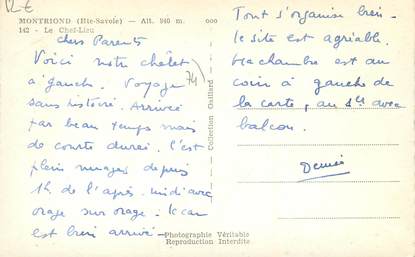 12 €
MONTRIOND (Hte-Savoie) — Alt. 940 m.
ooo
142 - Le Chef-Lieu
chers Parents
Voici notre châlet
à gauche. Voyage
sans histoire. Arrivée
par beau temps mais
de courte durée. C'est
plein nuages depuis
1h. de l'après-midi avec
orage sur orage. le car
est bien arrivé -
74
Collection Gaillard
Photographie Véritable
Reproduction Interdite
Tout s'organise bien -
le site est agréable.
Ma chambre est au
coin à gauche de
la carte, au 1er avec
balcon.
Denise